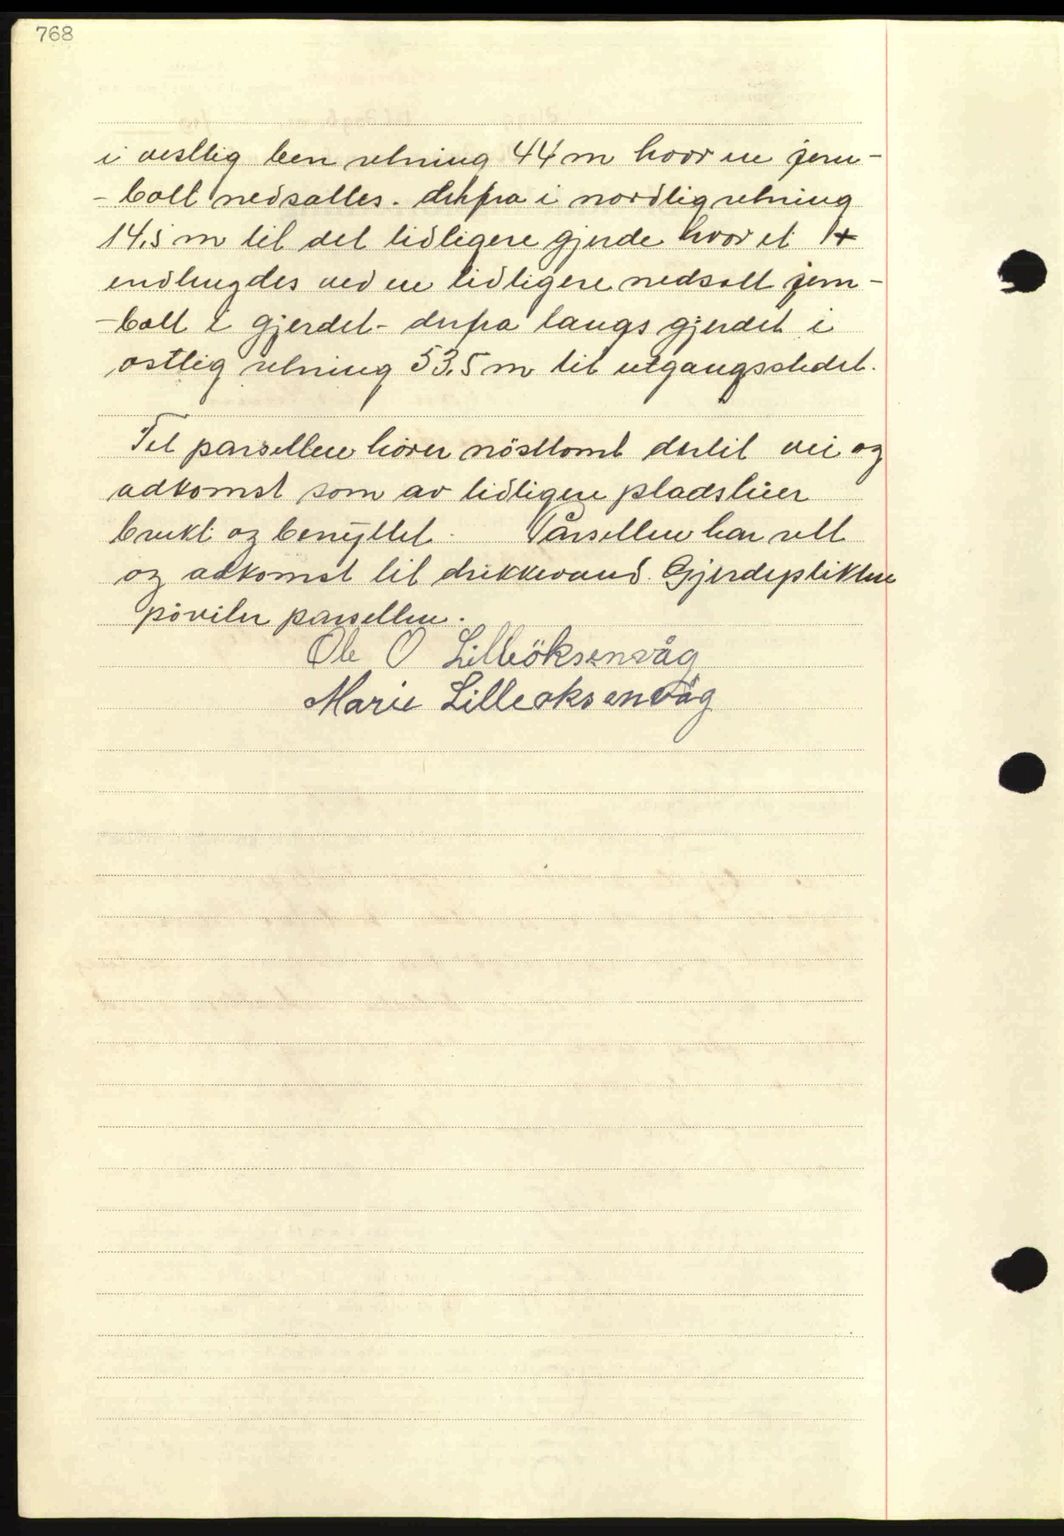 768
i vestlig ben retning 44 m hvor en jern-
- bolt nedsattes. derfra i nordlig retning
14,5 m til det tidligere gjerde hvor et +
endhugdes ved en tidligere nedsatt jern-
- bolt i gjerdet - derfra langs gjerdet i
østlig retning 53,5 m til utgangsstedet.
Til parsellen hører nösttomt dertil vei og
adkomst som av tidligere pladslier
brukt og benyttet. Parsellen har rett
og adkomst til drikkevand. Gjerdeplikten
påviler parsellen.
Ole O Lilleöksenvåg
Marie Lilleoksenvåg